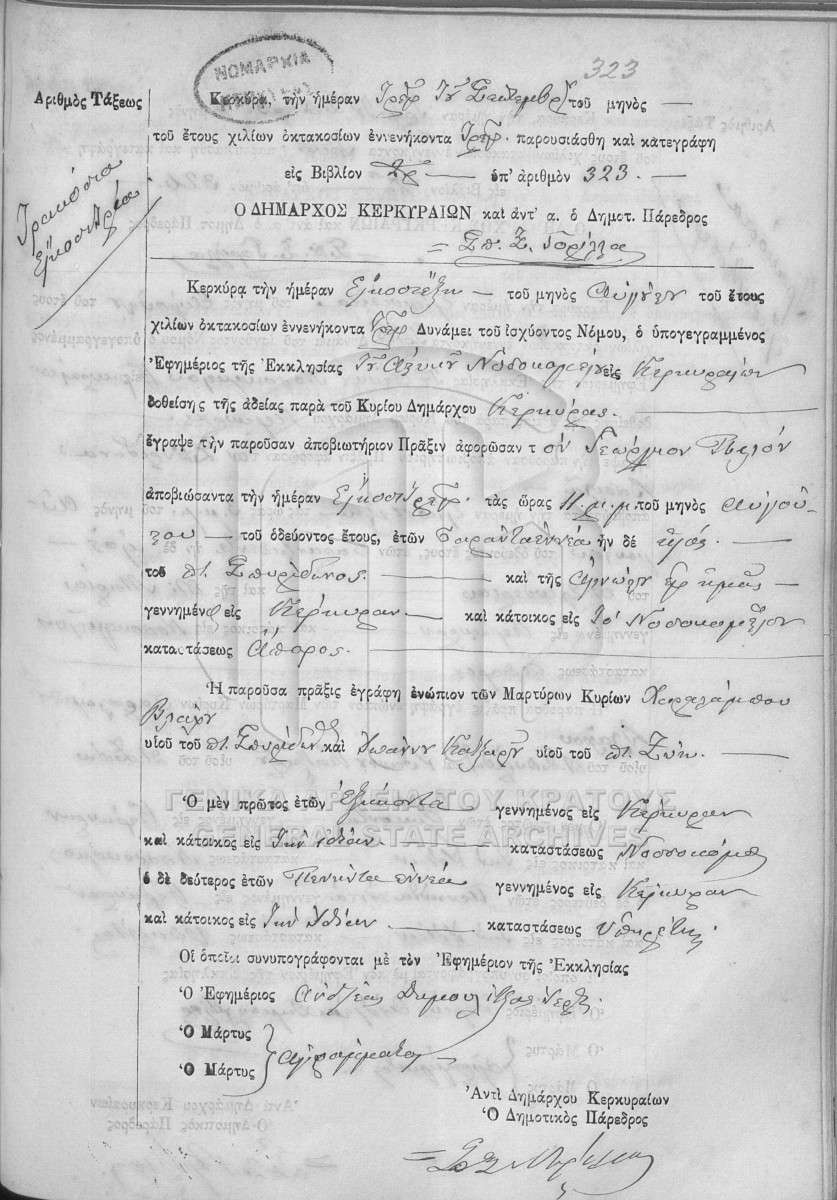 323
ΝΟΜΑΡΧΙΑ
Ἀριθμὸς Τάξεως
Τριακόσια
Εἴκοσι τρία
Κερκύρᾳ, τὴν ἡμέραν Τρεῖς τοῦ Σεπτεμβρ τοῦ μηνὸς —
τοῦ ἔτους χιλίων ὀκτακοσίων ἐννενήκοντα Τρεῖς. παρουσιάσθη καὶ κατεγράφη
εἰς Βιβλίον — ὑπ' ἀριθμὸν 323. —
Ο ΔΗΜΑΡΧΟΣ ΚΕΡΚΥΡΑΙΩΝ καὶ ἀντ' α. ὁ Δημοτ. Πάρεδρος
Σπ. Σ.
Κερκύρᾳ τὴν ἡμέραν Εἰκοστέξη — τοῦ μηνὸς Αὐγούστου τοῦ ἔτους
χιλίων ὀκτακοσίων ἐννενήκοντα Τρεῖς Δυνάμει τοῦ ἰσχύοντος Νόμου, ὁ ὑπογεγραμμένος
Ἐφημέριος τῆς Ἐκκλησίας Τοῦ Νοσοκομείου εἰς Κερκυραίων
δοθείσης τῆς ἀδείας παρὰ τοῦ Κυρίου Δημάρχου Κερκύρας. —
ἔγραψε τὴν παροῦσαν ἀποβιωτήριον Πρᾶξιν ἀφορῶσαν τ ὸν Γεώργιον
ἀποβιώσαντα τὴν ἡμέραν Εἰκοστὴ Τρεῖς. τὰς ὥρας 11. μ. μ. τοῦ μηνὸς Αὐγού-
στου — τοῦ ὁδεύοντος ἔτους, ἐτῶν Σαραντα ἐννέα ἦν δὲ υἱός. —
τοῦ π. Σπυρίδωνος. — καὶ τῆς Ἀγνώστου —
γεννημέν ος εἰς Κέρκυραν — καὶ κάτοικος εἰς Τὸ Νοσοκομεῖον
καταστάσεως Ἄπορος. —
Ἡ παροῦσα πρᾶξις ἐγράφη ἐνώπιον τῶν Μαρτύρων Κυρίων Χαραλάμπου
Βλάχου
υἱοῦ τοῦ π. Σπυρίδων καὶ Ἰωάννου υἱοῦ τοῦ π. Ζώη. —
Ὁ μὲν πρῶτος ἐτῶν Ἑξήκοντα — γεννημένος εἰς Κέρκυραν
καὶ κάτοικος εἰς Τὴν ἰδίαν — καταστάσεως Νοσοκόμος
ὁ δὲ δεύτερος ἐτῶν Πενήντα ἐννέα γεννημένος εἰς Κέρκυραν
καὶ κάτοικος εἰς Τὴν ἰδίαν — καταστάσεως Ὑπηρέτης
Οἱ ὁποῖοι συνυπογράφονται μὲ τὸν Ἐφημέριον τῆς Ἐκκλησίας
Ὁ Ἐφημέριος Ἀνδρέας
Ὁ Μάρτυς
Ὁ Μάρτυς ἀγράμματοι —
Ἀντὶ Δημάρχου Κερκυραίων
Ὁ Δημοτικὸς Πάρεδρος
ΓΕΝΙΚΑ ΑΡΧΕΙΑ ΤΟΥ ΚΡΑΤΟΥΣ
GENERAL STATE ARCHIVES